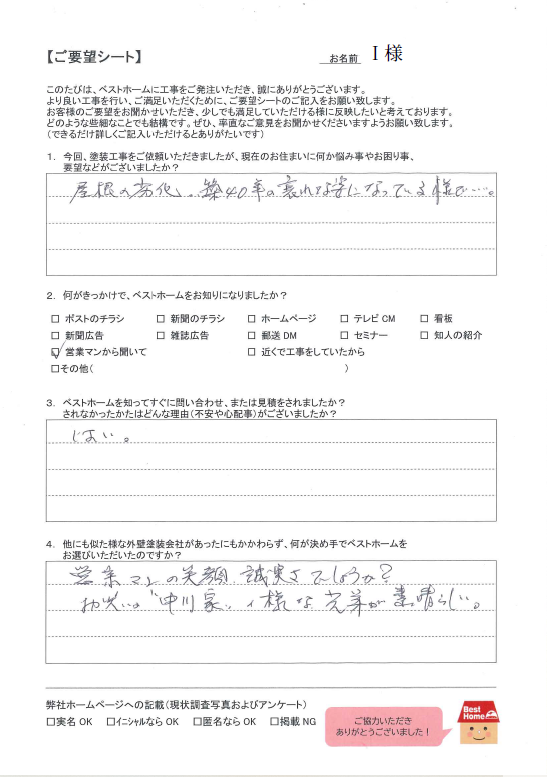 【ご要望シート】
お名前 I 様
このたびは、ベストホームに工事をご発注いただき、誠にありがとうございます。
より良い工事を行い、ご満足いただくために、ご要望シートのご記入をお願い致します。
お客様のご要望をお聞かせいただき、少しでも満足していただける様に反映したいと考えております。
どのような些細なことでも結構です。ぜひ、率直なご意見をお聞かせくださいますようお願い致します。
(できるだけ詳しくご記入いただけるとありがたいです)
1. 今回、塗装工事をご依頼いただきましたが、現在のお住まいに何か悩み事やお困り事、
要望などがございましたか？
屋根の劣化、築40年の哀れな姿になっている様で…。
2. 何がきっかけで、ベストホームをお知りになりましたか？
□ ポストのチラシ □ 新聞のチラシ □ ホームページ □ テレビ CM □ 看板
□ 新聞広告 □ 雑誌広告 □ 郵送 DM □ セミナー □ 知人の紹介
☑ 営業マンから聞いて □ 近くで工事をしていたから
□その他( )
3. ベストホームを知ってすぐに問い合わせ、または見積をされましたか？
されなかったかたはどんな理由(不安や心配事)がございましたか？
はい。
4. 他にも似た様な外壁塗装会社があったにもかかわらず、何が決め手でベストホームを
お選びいただいたのですか？
営業マンの笑顔、誠実さでしょうか？
お笑いの"中川家"の様な兄弟が素晴らしい。
弊社ホームページへの記載(現状調査写真およびアンケート)
□実名 OK □イニシャルなら OK □匿名なら OK □掲載 NG
ご協力いただき
ありがとうございました！
Best
Home